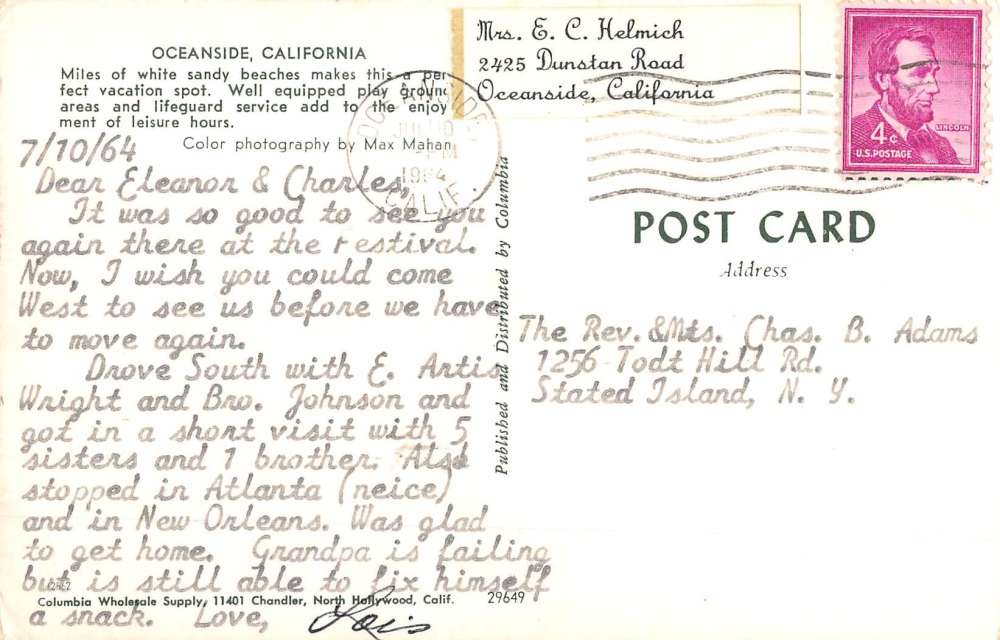 OCEANSIDE, CALIFORNIA
Miles of white sandy beaches makes this a per
fect vacation spot. Well equipped play ground
areas and lifeguard service add to the enjoy
ment of leisure hours.
Color photography by Max Mahan
7/10/64
Dear Eleanor & Charles,
It was so good to see you
again there at the Festival.
Now, I wish you could come
West to see us before we have
to move again.
Drove South with E. Artis
Wright and Bro. Johnson and
got in a short visit with 5
sisters and 1 brother. Also
stopped in Atlanta (neice)
and in New Orleans. Was glad
to get home. Grandpa is failing
but is still able to fix himself
a snack. Love, Lois
Columbia Wholesale Supply, 11401 Chandler, North Hollywood, Calif.
29649
Published and Distributed by Columbia
Mrs. E. C. Helmich
2425 Dunstan Road
Oceanside, California
OCEANSIDE
JUL 10
PM
1964
CALIF.
LINCOLN
4¢
U.S. POSTAGE
POST CARD
Address
The Rev. & Mts. Chas. B. Adams
1256 Todt Hill Rd.
Stated Island, N. Y.